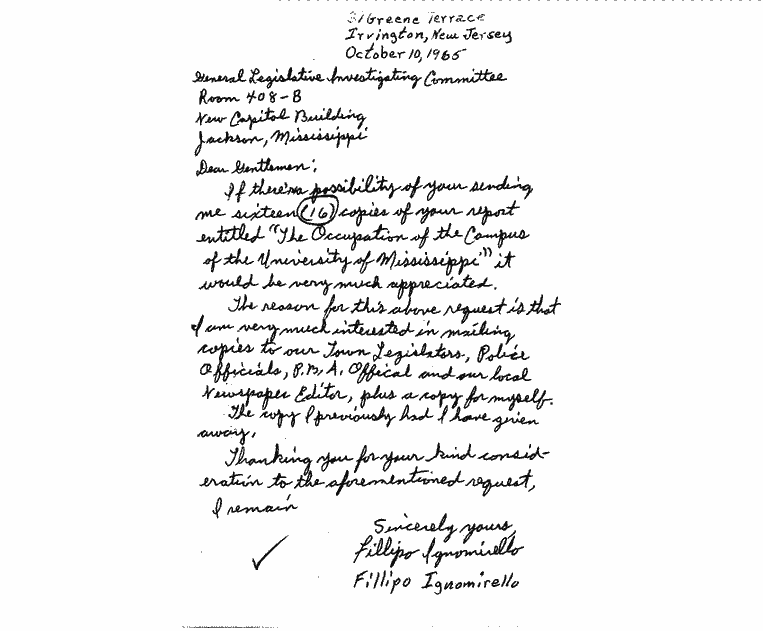 31 Greene Terrace
Irvington, New Jersey
October 10, 1965
General Legislative Investigating Committee
Room 408-B
New Capitol Building
Jackson, Mississippi
Dear Gentlemen:
If there's a possibility of your sending
me sixteen (16) copies of your report
entitled "The Occupation of the Campus
of the University of Mississippi" it
would be very much appreciated.
The reason for this above request is that
I am very much interested in mailing
copies to our Town Legislators, Police
Officials, P.B.A. Offical and our local
Newspaper Editor, plus a copy for myself.
The copy I previously had I have given
away.
Thanking you for your kind consid-
eration to the aforementioned request,
I remain
Sincerely yours,
Fillipo Ignomirello
Fillipo Ignomirello